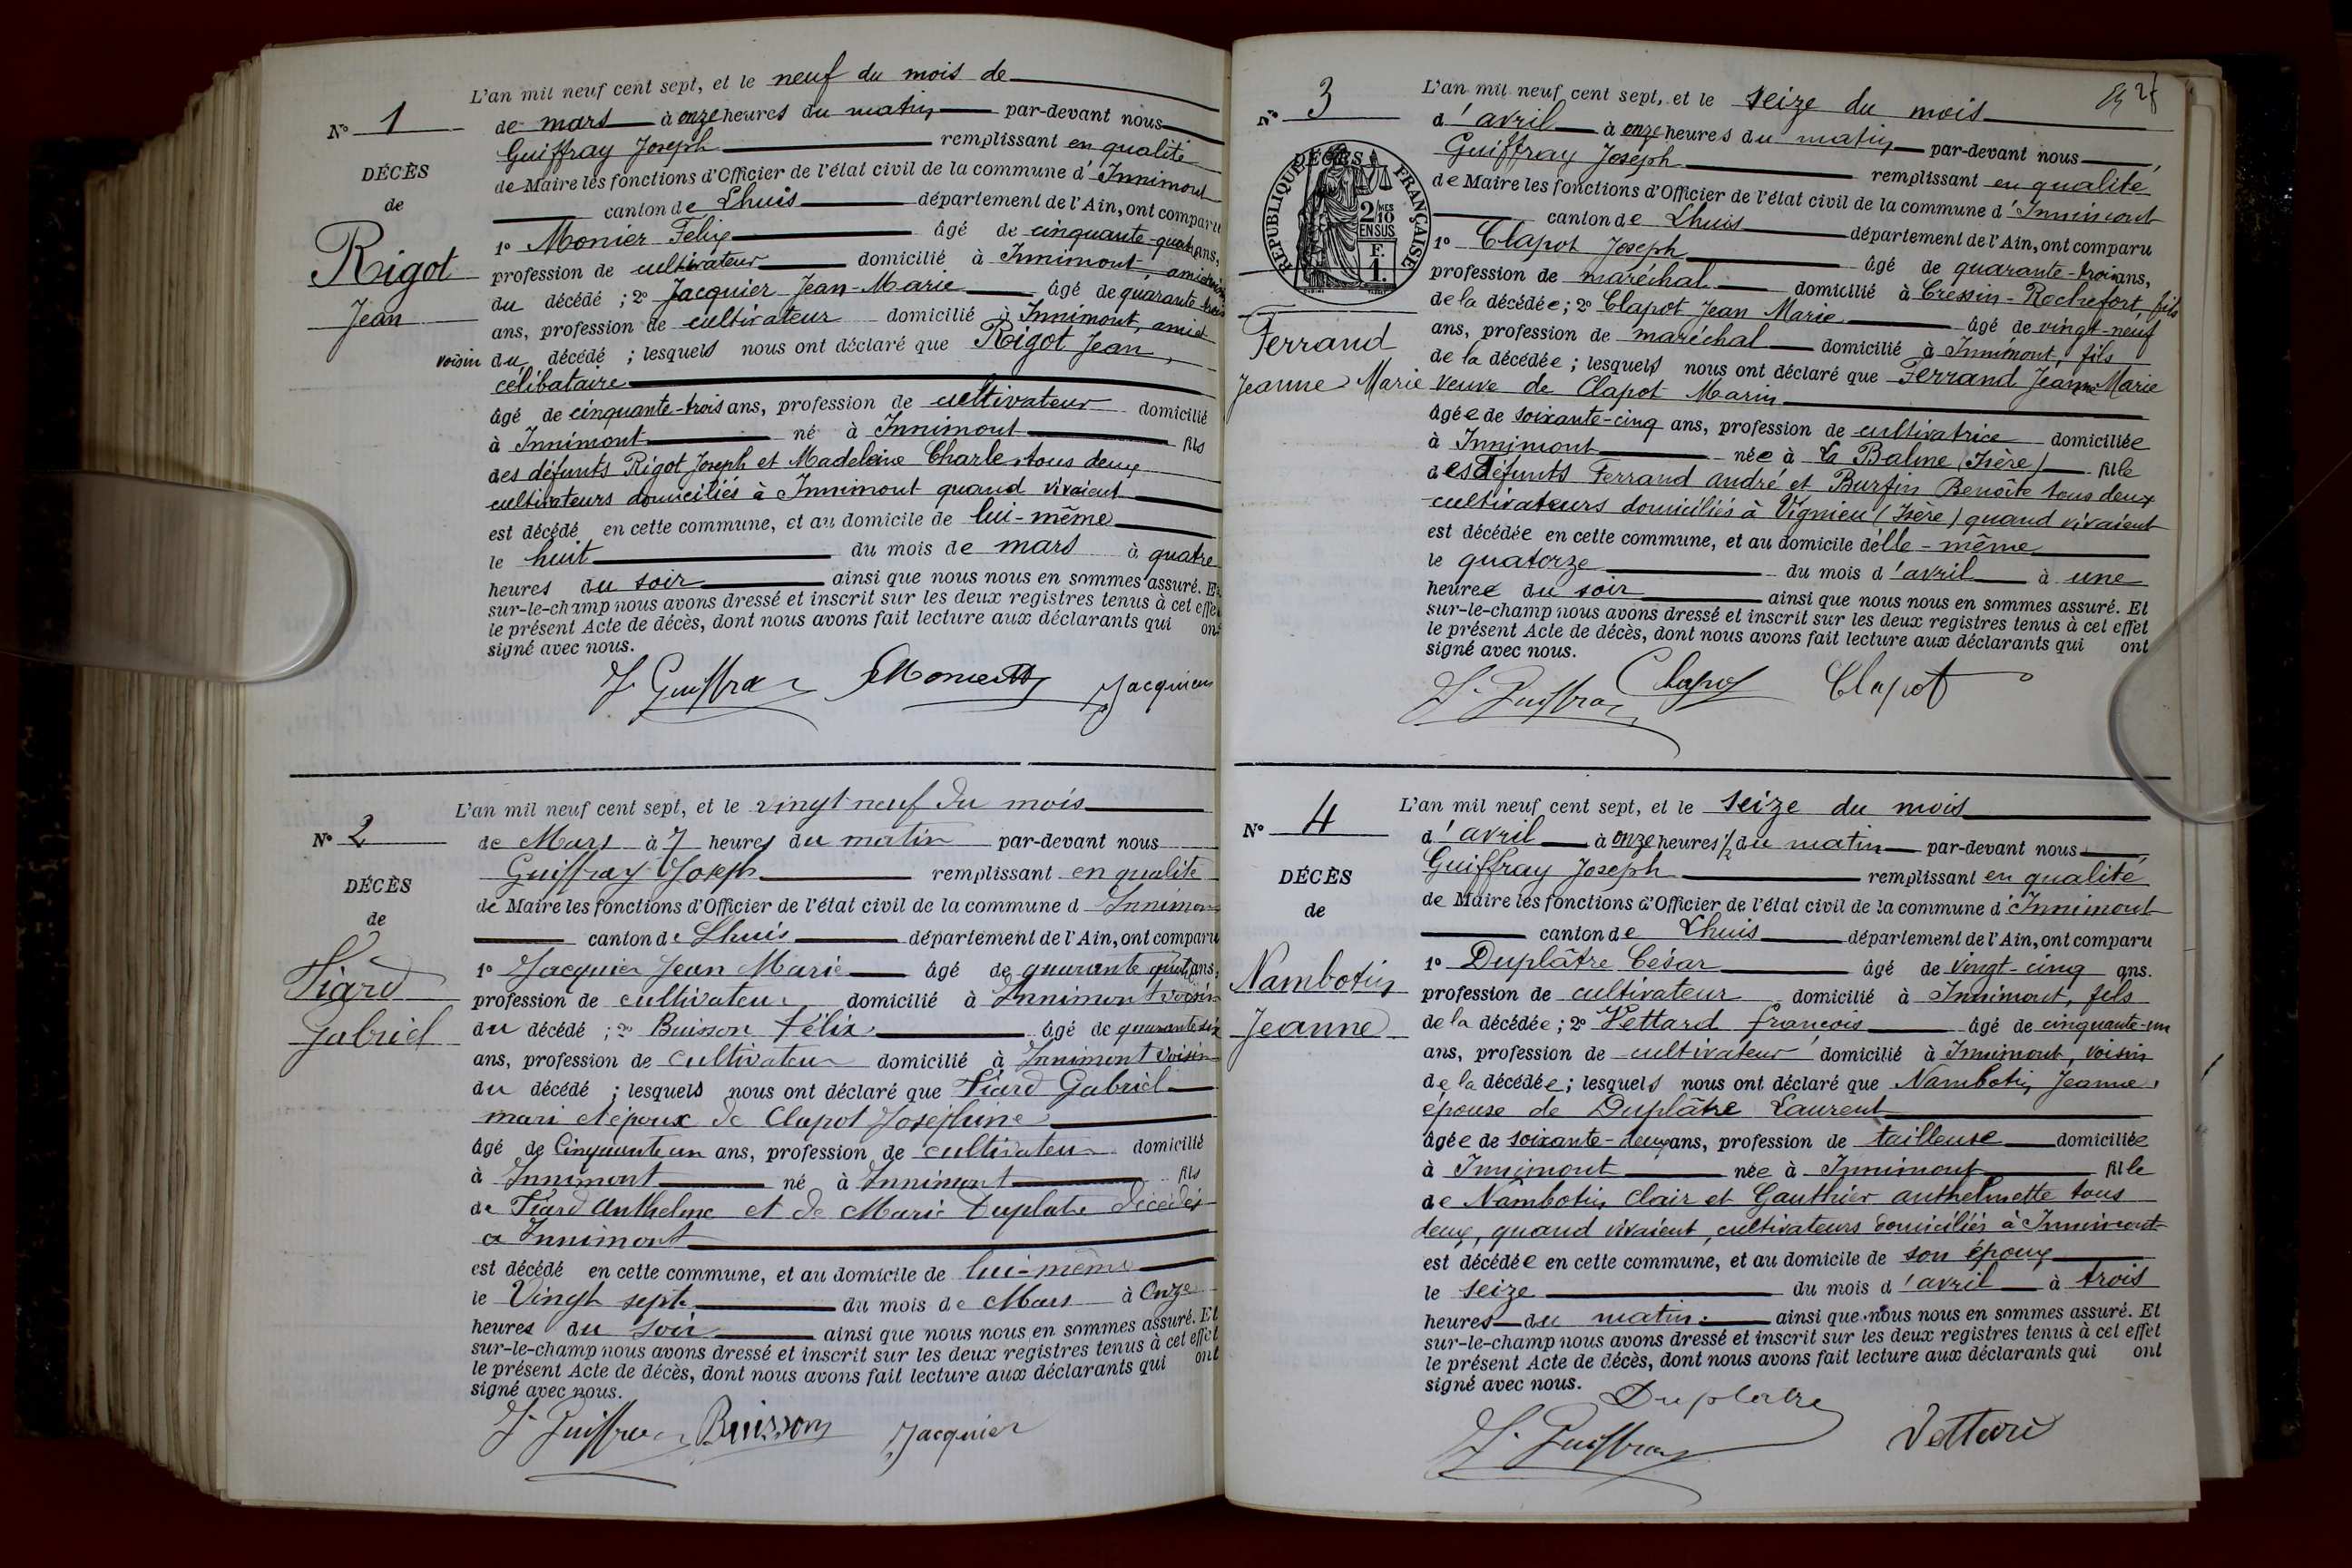 L'an mil neuf cent sept, et le neuf du mois de
N° 1
de mars à onze heures du matin par-devant nous
Guiffray Joseph remplissant en qualité
DÉCÈS
de Maire les fonctions d'Officier de l'état civil de la commune d'Innimont
de
canton de Lhuis département de l'Ain, ont comparu
Rigot
Jean
1° Monier Félix âgé de cinquante-quatre ans,
profession de cultivateur domicilié à Innimont, ami
du décédé ; 2° Jacquier Jean-Marie âgé de quarante-trois
ans, profession de cultivateur domicilié à Innimont, ami et
voisin du décédé ; lesquels nous ont déclaré que Rigot Jean,
célibataire
âgé de cinquante-trois ans, profession de cultivateur domicilié
à Innimont né à Innimont fils
des défunts Rigot Joseph et Madeleine Charle, tous deux
cultivateurs domiciliés à Innimont quand vivaient
est décédé en cette commune, et au domicile de lui-même
le huit du mois de mars à quatre
heures du soir ainsi que nous nous en sommes assuré. Et
sur-le-champ nous avons dressé et inscrit sur les deux registres tenus à cet effet
le présent Acte de décès, dont nous avons fait lecture aux déclarants qui ont
signé avec nous.
J. Guiffray Monier Jacquier
L'an mil neuf cent sept, et le vingt neuf du mois
N° 2
de Mars à 7 heures du matin par-devant nous
Guiffray Joseph remplissant en qualité
DÉCÈS
de Maire les fonctions d'Officier de l'état civil de la commune d Innimont
de
canton de Lhuis département de l'Ain, ont comparu
Tiard
Gabriel
1° Jacquier Jean Marie âgé de quarante ans,
profession de cultivateur domicilié à Innimont voisin
du décédé ; 2° Buisson Félix âgé de quarante six
ans, profession de cultivateur domicilié à Innimont voisin
du décédé ; lesquels nous ont déclaré que Tiard Gabriel
mari et époux de Clapot Joséphine
âgé de Cinquante un ans, profession de cultivateur domicilié
à Innimont né à Innimont fils
de Tiard Anthelme et de Marie Duplatre décédés
a Innimont
est décédé en cette commune, et au domicile de lui-même
le Vingt sept du mois de Mars à Onze
heures du soir ainsi que nous nous en sommes assuré. Et
sur-le-champ nous avons dressé et inscrit sur les deux registres tenus à cet effet
le présent Acte de décès, dont nous avons fait lecture aux déclarants qui ont
signé avec nous.
J. Guiffray Buisson Jacquier
L'an mil neuf cent sept, et le seize du mois
N° 3
d'avril à onze heures du matin par-devant nous
Guiffray Joseph remplissant en qualité
de Maire les fonctions d'Officier de l'état civil de la commune d'Innimont
canton de Lhuis département de l'Ain, ont comparu
DÉCÈS
RÉPUBLIQUE FRANÇAISE
2/10 MES
EN SUS
F.
1.
Ferrand
Jeanne Marie
1° Clapot Joseph âgé de quarante-trois ans,
profession de maréchal domicilié à Cressin-Rochefort, fils
de la décédée ; 2° Clapot Jean Marie âgé de vingt-neuf
ans, profession de maréchal domicilié à Innimont, fils
de la décédée ; lesquels nous ont déclaré que Ferrand Jeanne Marie
veuve de Clapot Marin
âgée de soixante-cinq ans, profession de cultivatrice domiciliée
à Innimont née à La Balme (Isère) fille
des défunts Ferrand André et Burfin Benoîte tous deux
cultivateurs domiciliés à Vignieu (Isère) quand vivaient
est décédée en cette commune, et au domicile d'elle-même
le quatorze du mois d'avril à une
heure du soir ainsi que nous nous en sommes assuré. Et
sur-le-champ nous avons dressé et inscrit sur les deux registres tenus à cet effet
le présent Acte de décès, dont nous avons fait lecture aux déclarants qui ont
signé avec nous.
J. Guiffray Clapot Clapot
L'an mil neuf cent sept, et le seize du mois
N° 4
d'avril à onze heures 1/2 du matin par-devant nous
Guiffray Joseph remplissant en qualité
DÉCÈS
de Maire les fonctions d'Officier de l'état civil de la commune d'Innimont
de
canton de Lhuis département de l'Ain, ont comparu
Nambotin
Jeanne
1° Duplâtre César âgé de vingt-cinq ans.
profession de cultivateur domicilié à Innimont, fils
de la décédée ; 2° Vettard françois âgé de cinquante-un
ans, profession de cultivateur domicilié à Innimont, voisin
de la décédée ; lesquels nous ont déclaré que Nambotin Jeanne,
épouse de Duplâtre Laurent
âgée de soixante-deux ans, profession de tailleuse domiciliée
à Innimont née à Innimont fille
de Nambotin Clair et Gauthier anthelmette tous
deux, quand vivaient, cultivateurs domiciliés à Innimont
est décédée en cette commune, et au domicile de son époux
le seize du mois d'avril à trois
heures du matin. ainsi que nous nous en sommes assuré. Et
sur-le-champ nous avons dressé et inscrit sur les deux registres tenus à cet effet
le présent Acte de décès, dont nous avons fait lecture aux déclarants qui ont
signé avec nous.
Duplatre
J. Guiffray Vettard